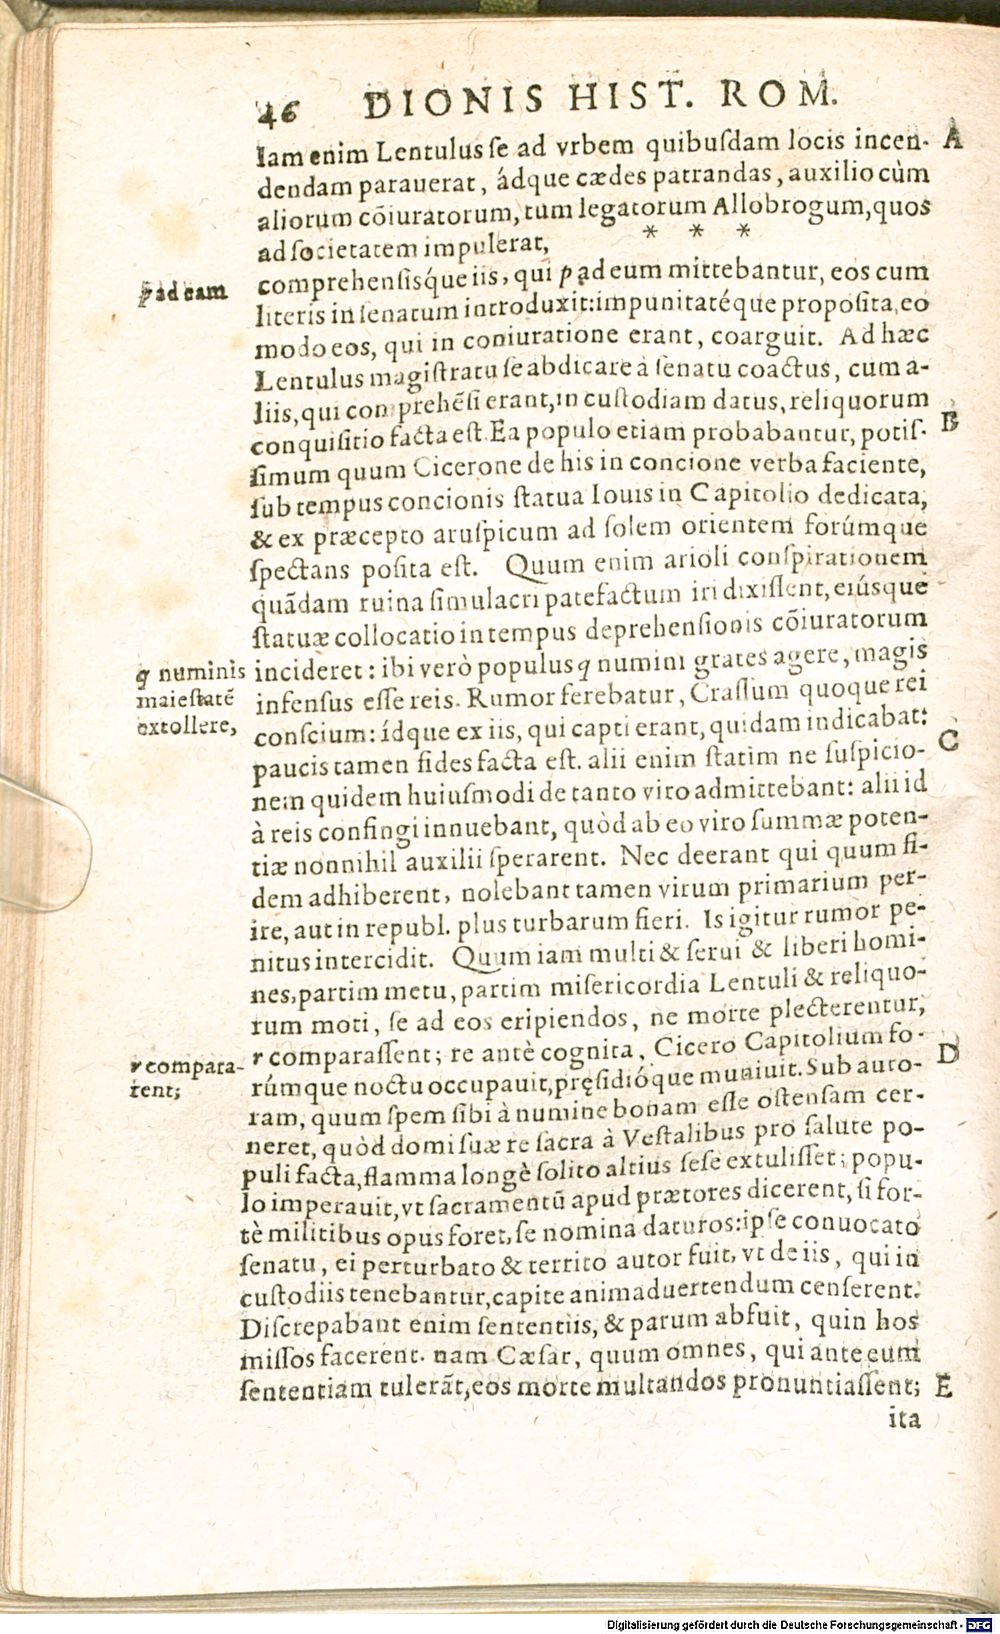 46 DIONIS HIST. ROM.
Iam enim Lentulus se ad vrbem quibuſdam locis incen- A
dendam parauerat, ádque cædes patrandas, auxilio cùm
aliorum cõiuratorum, tum legatorum Allobrogum, quos
ad ſocietatem impulerat, * * *
p ad eam
comprehenſisq́ue iis, qui p ad eum mittebantur, eos cum
literis in ſenatum introduxit: impunitatéque propoſita, eo
modo eos, qui in coniuratione erant, coarguit. Ad hæc
Lentulus magiſtratu ſe abdicare à ſenatu coactus, cum a-
liis, qui comprehẽſi erant, in cuſtodiam datus, reliquorum
conquiſitio facta eſt. Ea populo etiam probabantur, potiſ- B
ſimum quum Cicerone de his in concione verba faciente,
ſub tempus concionis ſtatua Iouis in Capitolio dedicata,
& ex præcepto aruſpicum ad ſolem orientem forúmque
ſpectans poſita eſt. Quum enim arioli conſpirationem
quãdam ruina ſimulacri patefactum iri dixiſſent, eiúsque
ſtatuæ collocatio in tempus deprehenſionis cõiuratorum
q numinis
maieſtatẽ
extollere,
incideret: ibi verò populus q numini grates agere, magis
infenſus eſſe reis. Rumor ferebatur, Craſſum quoque rei
conſcium: ídque ex iis, qui capti erant, quidam indicabat: C
paucis tamen fides facta eſt. alii enim ſtatim ne ſuſpicio-
nem quidem huiuſmodi de tanto viro admittebant: alii id
à reis confingi innuebant, quòd ab eo viro ſummæ poten-
tiæ nonnihil auxilii ſperarent. Nec deerant qui quum fi-
dem adhiberent, nolebant tamen virum primarium per-
ire, aut in republ. plus turbarum fieri. Is igitur rumor pe-
nitus intercidit. Quum iam multi & ſerui & liberi homi-
nes, partim metu, partim miſericordia Lentuli & reliquo-
rum moti, ſe ad eos eripiendos, ne morte plecterentur,
r compara-
rent;
r comparaſſent; re antè cognita, Cicero Capitolium fo- D
rúmque noctu occupauit, pręſidióque muniuit. Sub auro-
ram, quum ſpem ſibi à numine bonam eſſe oſtenſam cer-
neret, quòd domi ſuæ re ſacra à Veſtalibus pro ſalute po-
puli facta, flamma longè ſolito altius ſeſe extuliſſet; popu-
lo imperauit, vt ſacramentũ apud prætores dicerent, ſi for-
tè militibus opus foret, ſe nomina daturos: ipſe conuocato
ſenatu, ei perturbato & territo autor fuit, vt de iis, qui in
cuſtodiis tenebantur, capite animaduertendum cenſerent.
Diſcrepabant enim ſententiis, & parum abfuit, quin hos
miſſos facerent. nam Cæſar, quum omnes, qui ante eum
ſententiam tulerãt, eos morte multandos pronuntiaſſent; E
ita
Digitalisierung gefördert durch die Deutsche Forschungsgemeinschaft - DFG